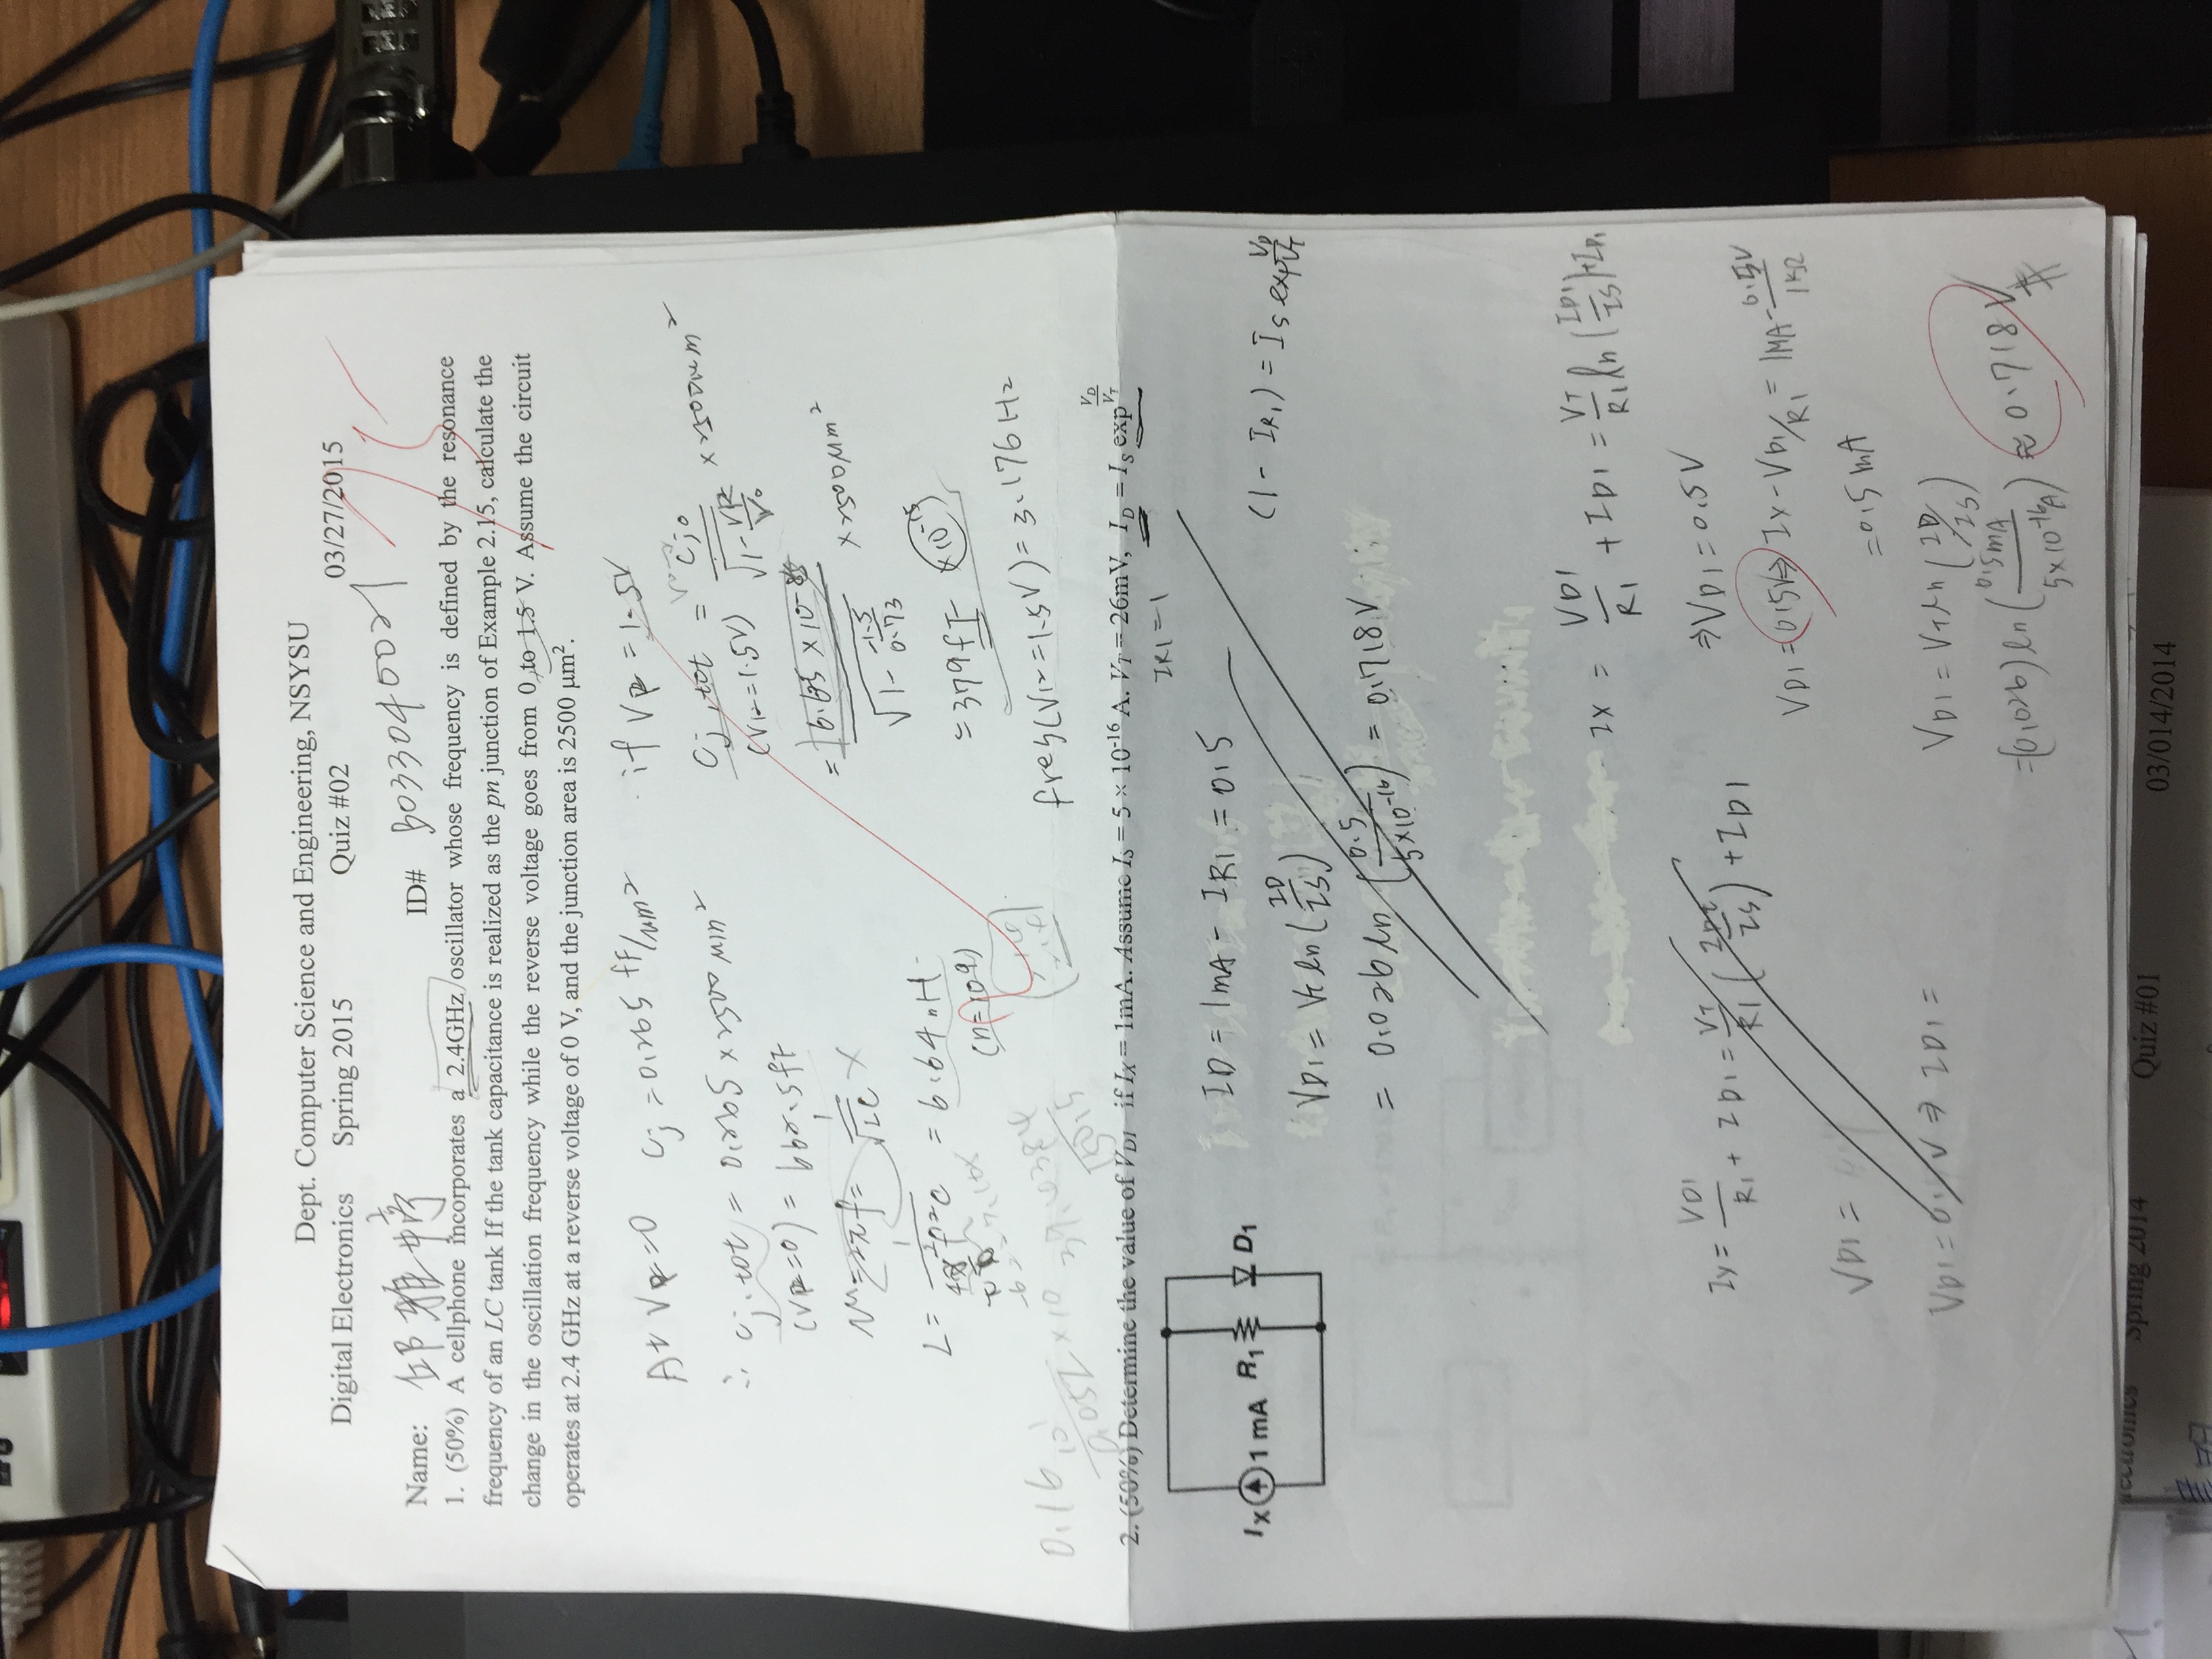 Dept. Computer Science and Engineering, NSYSU
Digital Electronics Spring 2015 Quiz #02 03/27/2015
75
Name: 邱雅婷 ID# B033040021
1. (50%) A cellphone incorporates a 2.4GHz oscillator whose frequency is defined by the resonance
frequency of an LC tank If the tank capacitance is realized as the pn junction of Example 2.15, calculate the
change in the oscillation frequency while the reverse voltage goes from 0 to 1.5 V. Assume the circuit
operates at 2.4 GHz at a reverse voltage of 0 V, and the junction area is 2500 μm².
At VR=0 Cj = 0.265 fF/um²
∴ Cj.tot = 0.265 × 2500 μm²
(VR=0) = 662.5fF
W=2πf= 1/√LC
L= 1/4π²f²C = 6.64 nH
(n=10-9)
if VR = 1.5V
Cj,tot = Cj0/√1-VR/V0 × 2500um²
(VR=1.5V)
= /√1- -1.5/0.73 × 2500μm²
= 379fF ×10⁻¹⁵
freg(VR=1.5V)= 3.17GHz
0.16
2. (50%) Determine the value of VD1 if IX = 1mA. Assume IS = 5 × 10⁻¹⁶ A. VT = 26mV, ID = IS exp VD/VT
IR1=1
IX 1 mA R1 D1
ID = 1mA - IR1 = 0.5
(1 - IR1) = Is exp VD/VT
VD1 = VT ln (ID/IS)
= 0.026 ln (0.5/5×10⁻¹⁶) = 0.718V
IX = VD1/R1 + ID1 = VT/R1 ln (ID1/IS)+ID1
⇒VD1=0.5V
Ix= VD1/R1 + ID1 = VT/R1 (ID1/IS) + ID1
VD1=0.5V⇒ IX-VD1/R1 = 1MA-0.5V/1kΩ
VD1 =
=0.5 mA
VD1 = V ⇒ ID1 =
VD1 = VT ln (ID/IS)
=(0.026) ln (0.5mA/5×10⁻¹⁶A) ≈ 0.718V #
Spring 2014 Quiz #01 03/014/2014